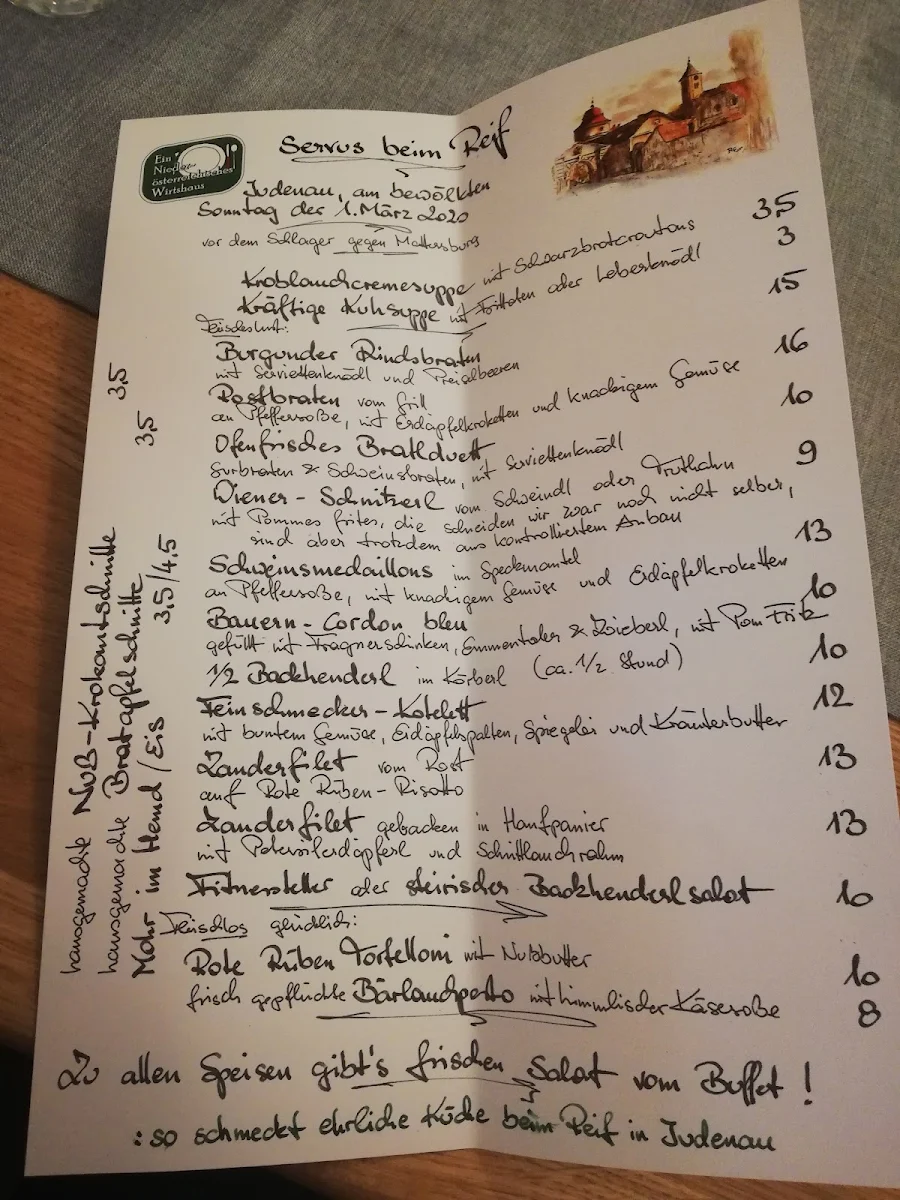 Ein
Nieder-
österreichisches
Wirtshaus
Servus beim Reif
Judenau, am bewölkten
Sonntag der 1. März 2020
vor dem Schlager gegen Mattersburg
Knoblauchcremesuppe mit Schwarzbrotcroutons 3,5
Kräftige Kuhsuppe mit Frittaten oder Leberknödl 3
Fleischeslust:
Burgunder Rindsbraten 15
mit Serviettenknödl und Preiselbeeren
Rostbraten vom Grill 16
an Pfeffersoße, mit Erdäpfelkroketten und knackigem Gemüse
Ofenfrisches Bratlduett 10
Surbraten & Schweinsbraten, mit Serviettenknödl
Wiener-Schnitzerl vom Schweindl oder Truthahn 9
mit Pommes frites, die schneiden wir zwar noch nicht selber,
sind aber trotzdem aus kontrolliertem Anbau
Schweinsmedaillons im Speckmantel 13
an Pfeffersoße, mit knackigem Gemüse und Erdäpfelkroketten
Bauern-Cordon bleu 10
gefüllt mit Fragnerschinken, Emmentaler & Zwieberl, mit Pom Fritz
1/2 Backhenderl im Körberl (ca. 1/2 Stund) 10
Feinschmecker-Kotelett 12
mit buntem Gemüse, Erdäpfelspalten, Spiegelei und Kräuterbutter
Zanderfilet vom Rost 13
auf Rote Rüben-Risotto
Zanderfilet gebacken in Hanfpanier 13
mit Petersilerdäpferl und Schnittlauchrahm
Fitnessteller oder steirischer Backhenderlsalat 10
Fleischlos glücklich:
Rote Rüben Tortelloni mit Nußbutter 10
frisch gepflückte Bärlauchpesto mit himmlischer Käsesoße 8
Zu allen Speisen gibt's frischen Salat vom Buffet!
: so schmeckt ehrliche Küche beim Reif in Judenau
hausgemachte Nuß-Krokantschnitte 3,5
hausgemachte Bratapfelschnitte 3,5
Mohr im Hemd / Eis 3,5/4,5